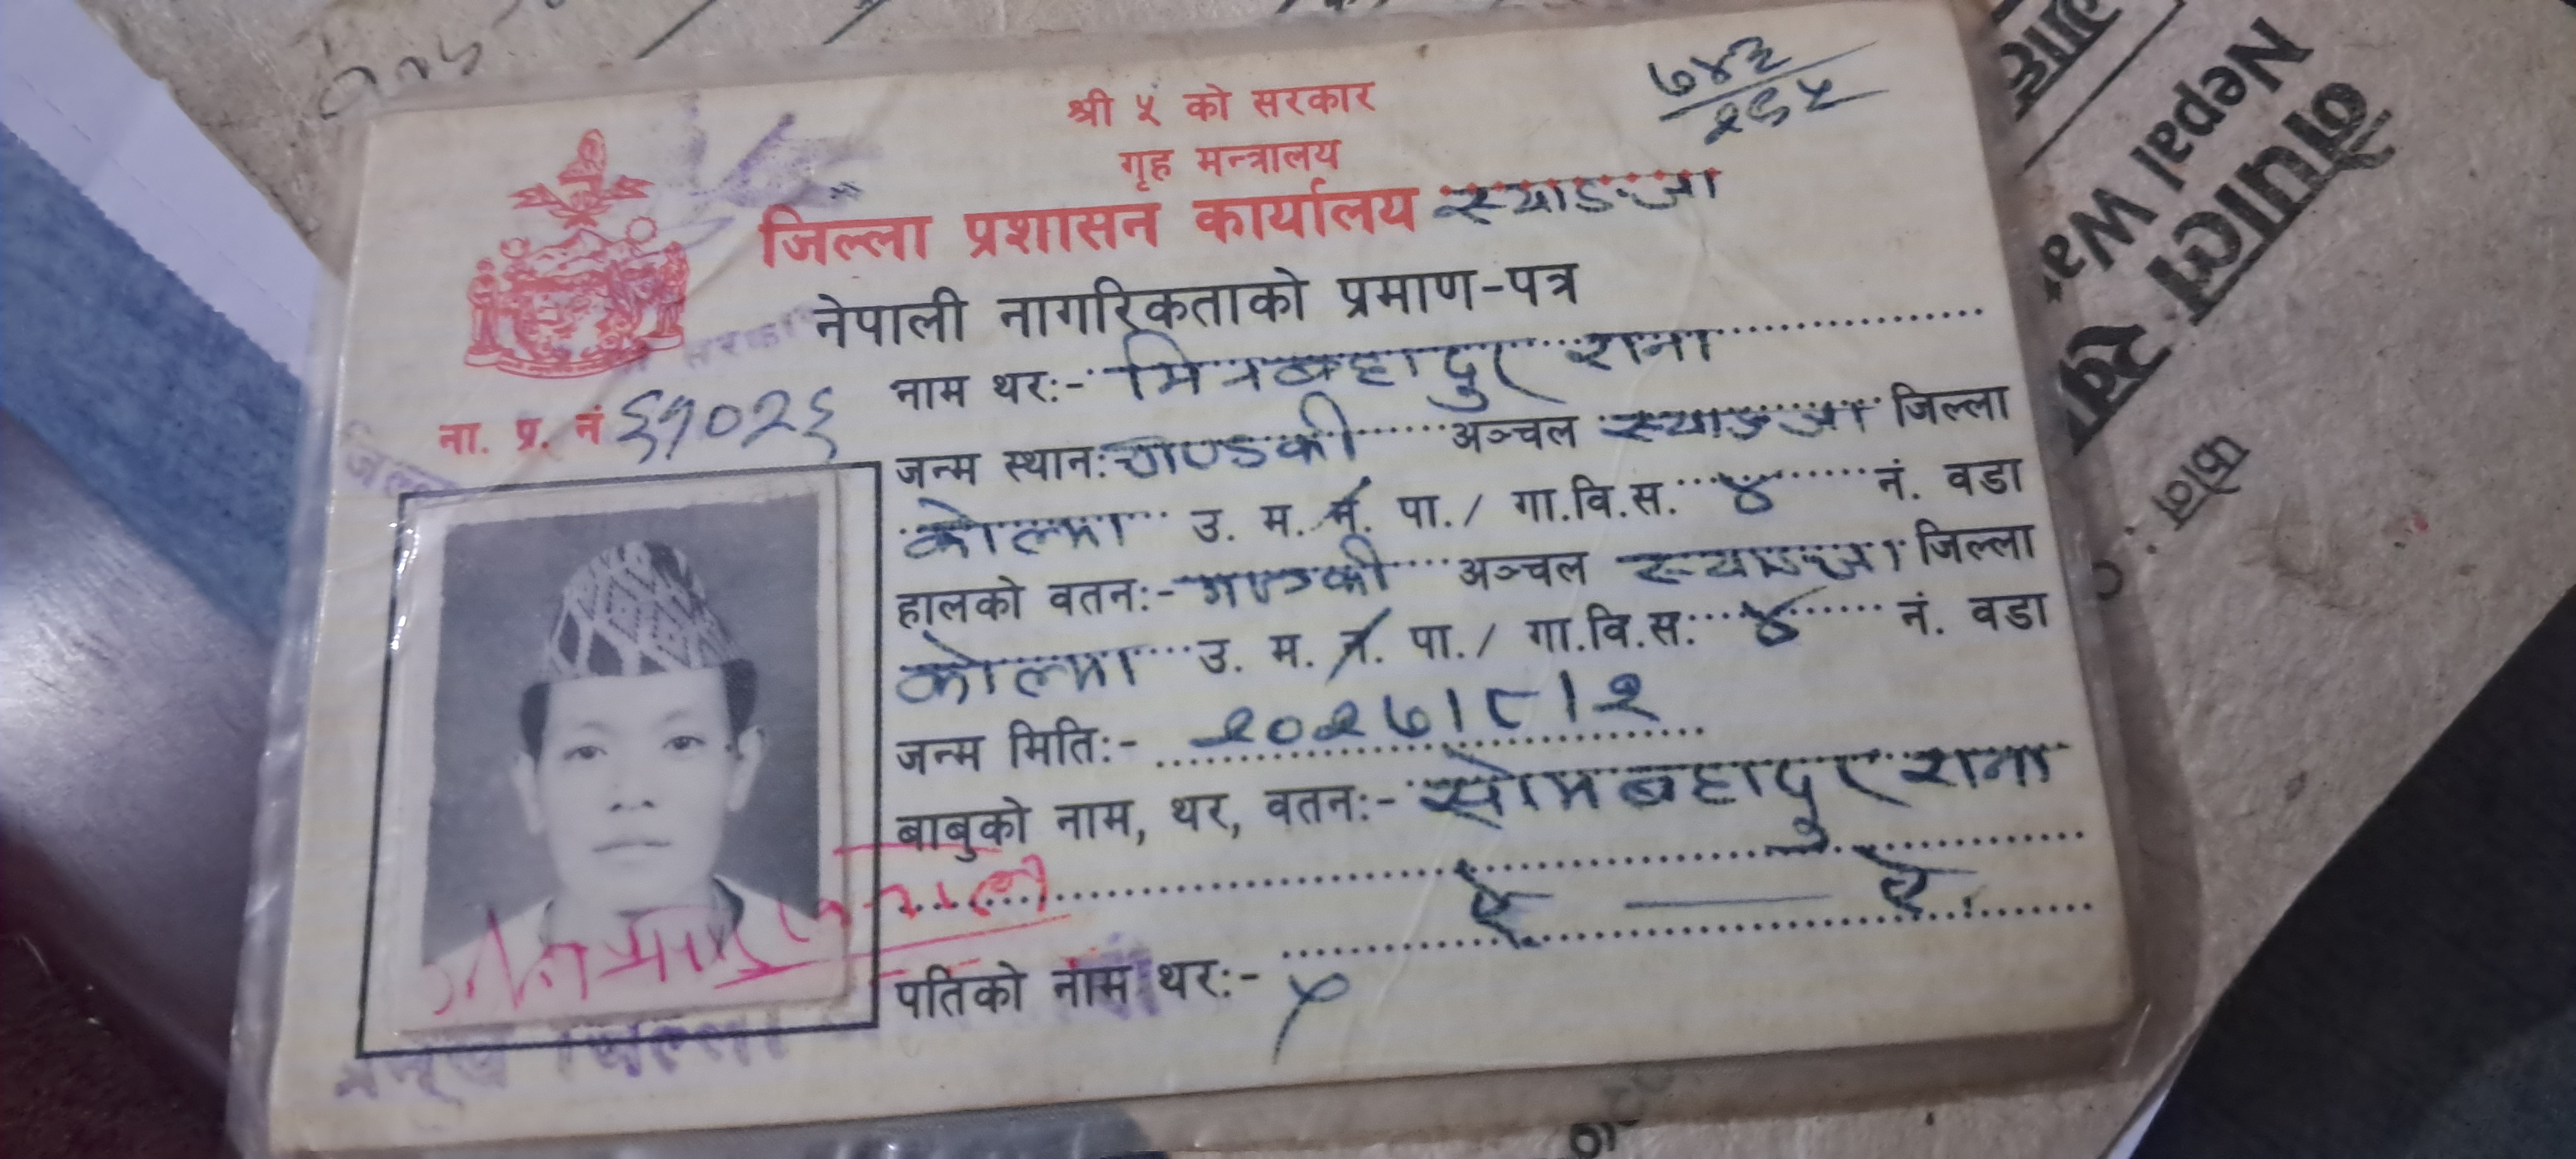 ७४३
२६५
श्री ५ को सरकार
गृह मन्त्रालय
जिल्ला प्रशासन कार्यालय स्याङ्जा
नेपाली नागरिकताको प्रमाण-पत्र
ना. प्र. नं ६१०२६
नाम थर:- मित्रबहादुर राना
जन्म स्थान: गण्डकी अञ्चल स्याङ्जा जिल्ला
कोल्मा उ. म. न. पा. / गा.वि.स. ४ नं. वडा
हालको वतन:- गण्डकी अञ्चल स्याङ्जा जिल्ला
कोल्मा उ. म. न. पा. / गा.वि.स. ४ नं. वडा
जन्म मिति:- २०२७।८।२
बाबुको नाम, थर, वतन:- सोमबहादुर राना
ऐ — ऐ.
पतिको नाम थर:- ×
जिल्ला
नेपाल
Nepal
फोन